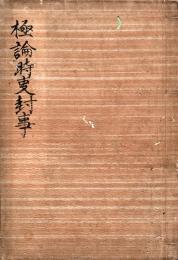 極論時叓封事